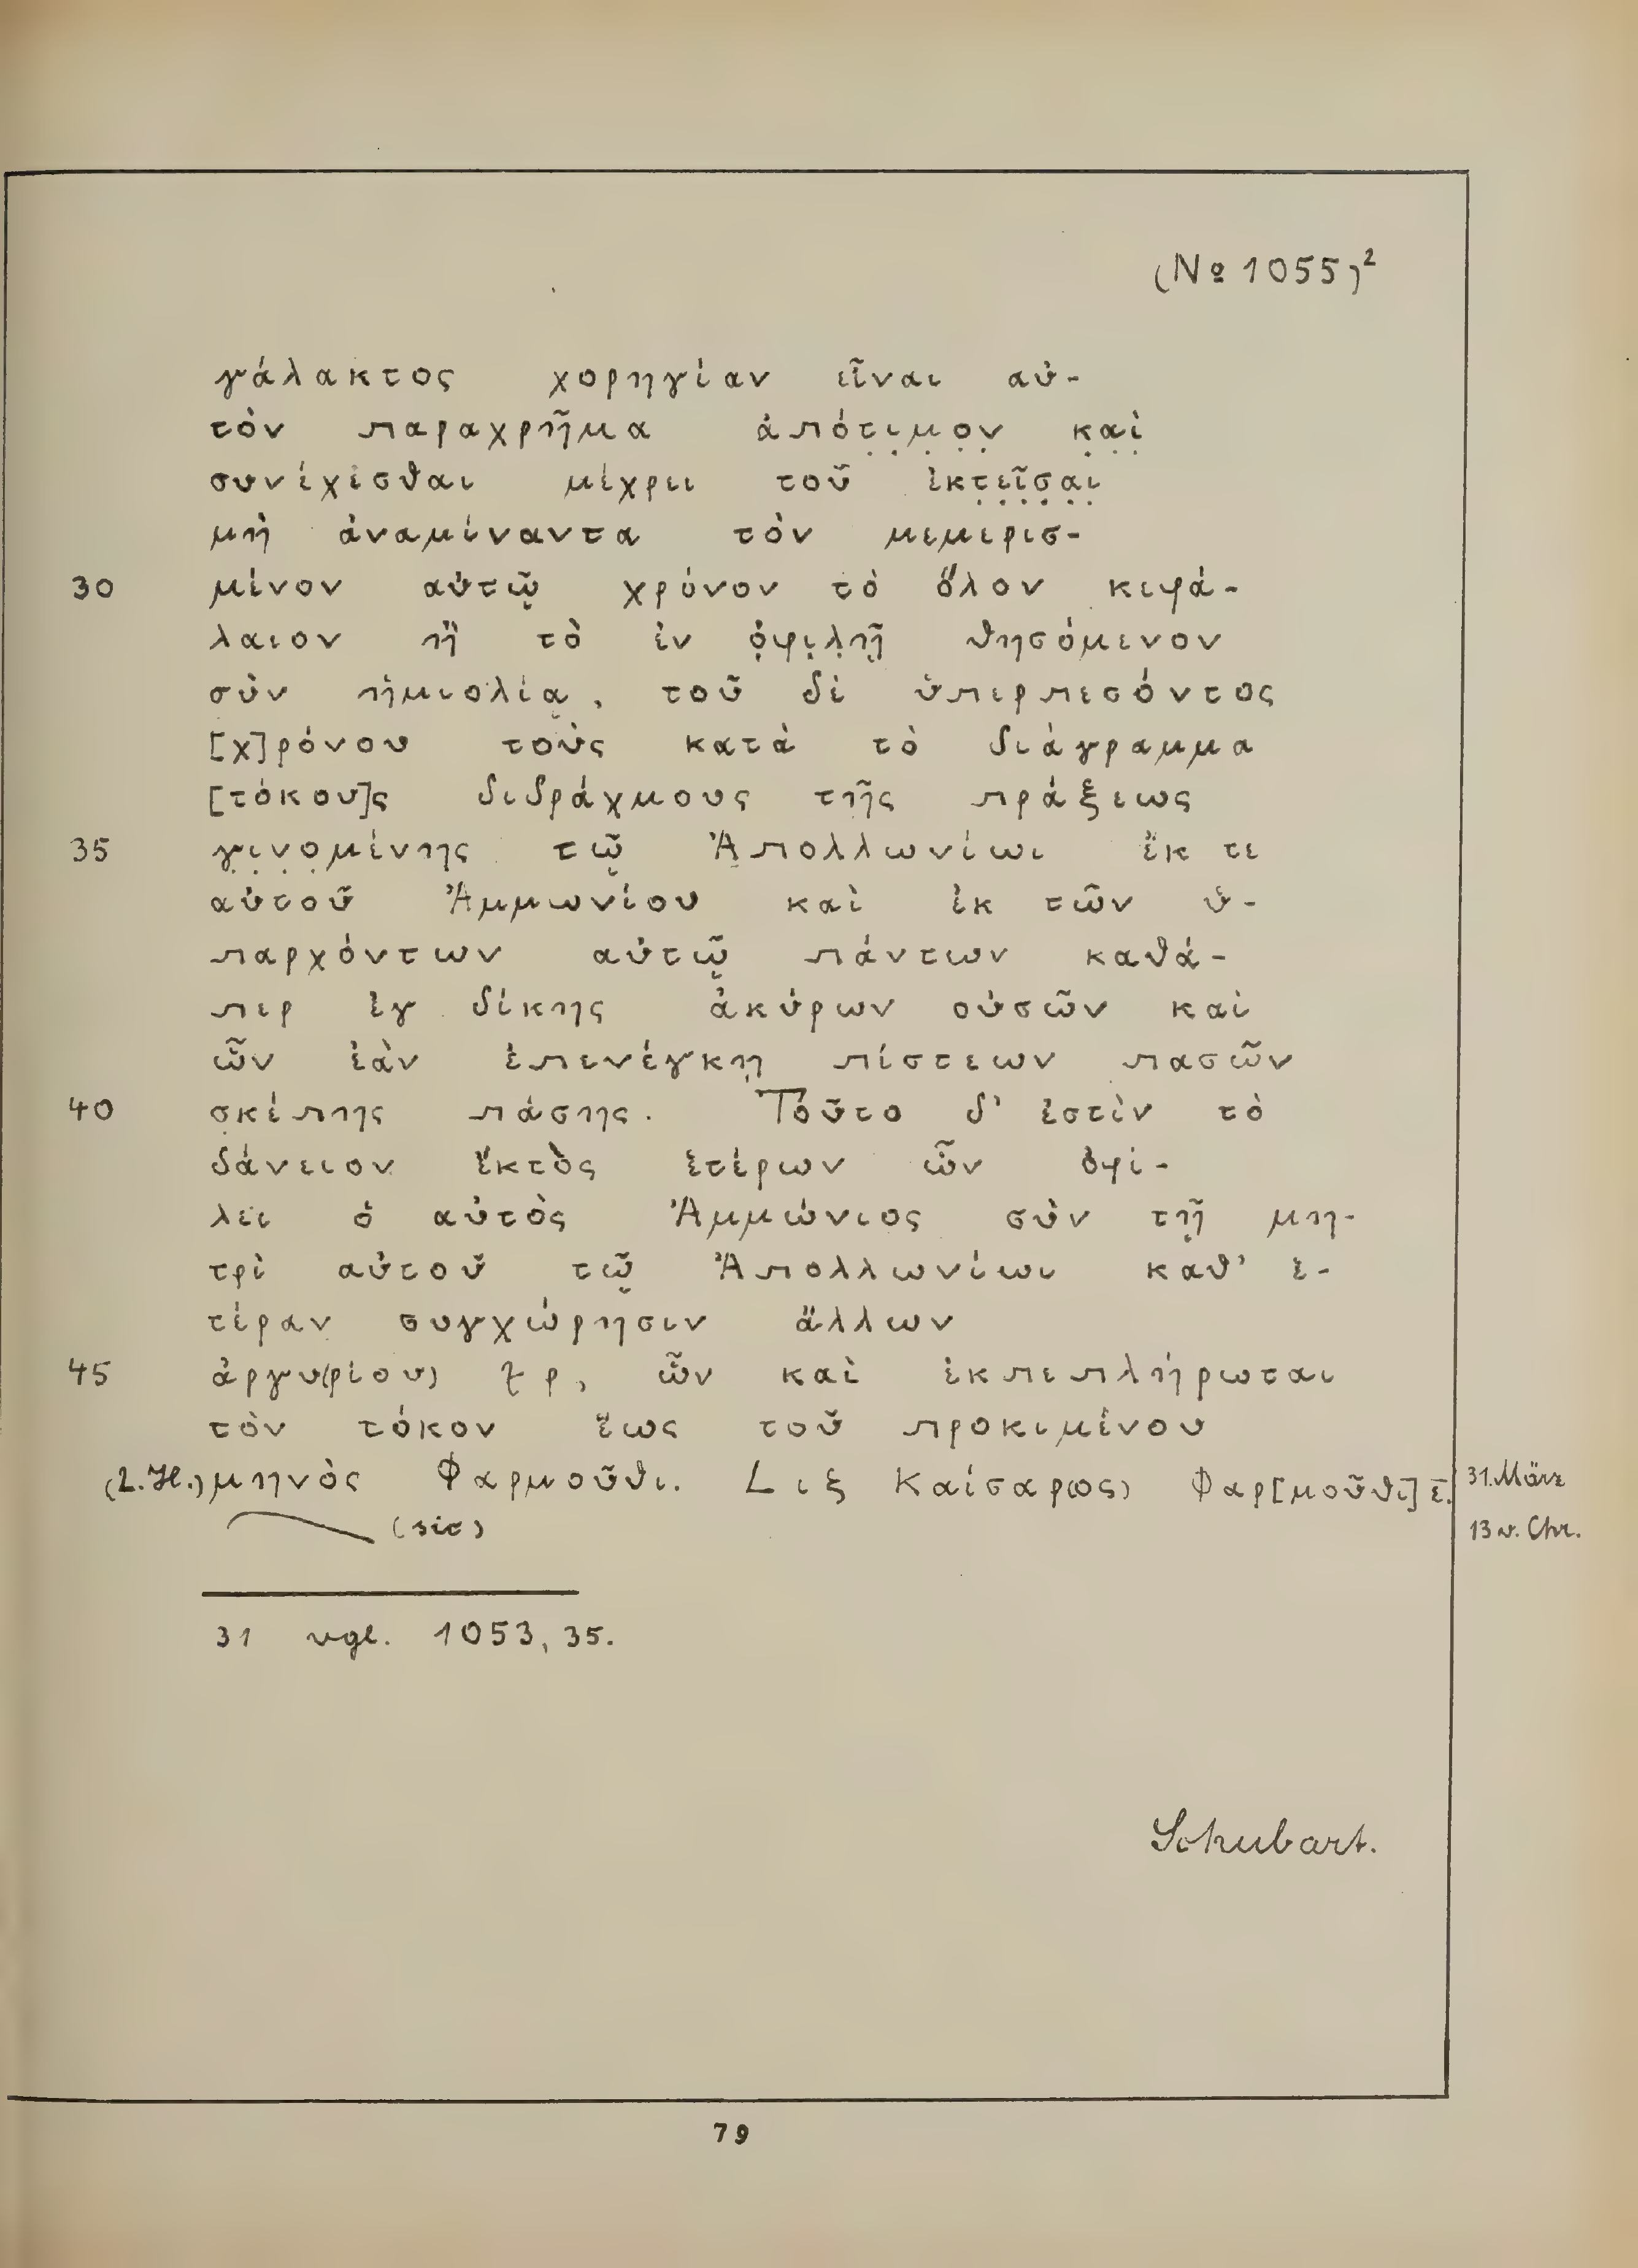 (Nº 1055)²
γάλακτος χορηγίαν εἶναι αὐ-
τὸν παραχρῆμα ἀπότ̣ι̣μ̣ο̣ν̣ κ̣α̣ὶ̣
συνέχεσθαι μέχρει τοῦ ἐκτ̣ε̣ῖ̣σ̣α̣ι̣
μὴ ἀναμείναντα τὸν μεμερισ-
30 μένον αὐτῷ χρόνον τὸ ὅλον κεφά-
λαιον ἢ τὸ ἐν ὀ̣φ̣ι̣λ̣ῇ θησόμενον
σὺν ἡμιολίᾳ, τοῦ δὲ ὑπερπεσόντος
[χ]ρόνου τοὺς κατὰ τὸ διάγραμμα
[τόκου]ς διδράχμους τῆς πράξεως
35 γ̣ι̣ν̣ο̣μ̣ένης τῷ Ἀπολλωνίωι ἔκ τε
αὐτοῦ Ἀμμωνίου καὶ ἐκ τῶν ὑ-
παρχόντων αὐτῷ πάντων καθά-
περ ἐγ δίκης ἀκύρων οὐσῶν καὶ
ὧν ἐὰν ἐπενέγκῃ πίστεων πασῶν
40 σκέπης πάσης. Τοῦτο δ' ἐστὶν τὸ
δάνειον ἔκτὸς ἑτέρων ὧν ὀφί-
λει ὁ αὐτὸς Ἀμμώνιος σὺν τῇ μη-
τρὶ αὐτοῦ τῷ Ἀπολλωνίωι καθ' ἑ-
τέραν συγχώρησιν ἄλλων
45 ἀργυ(ρίου) ρ, ὧν καὶ ἐκπεπλήρωται
τὸν τόκον ἕως τοῦ προκιμένου
(2.H.) μηνὸς Φαρμοῦθι. L ιξ Καίσαρ(ος) Φαρ[μοῦθι] ε̅. 31. März
(sic) 13 v. Chr.
31 vgl. 1053, 35.
Schubart.
79